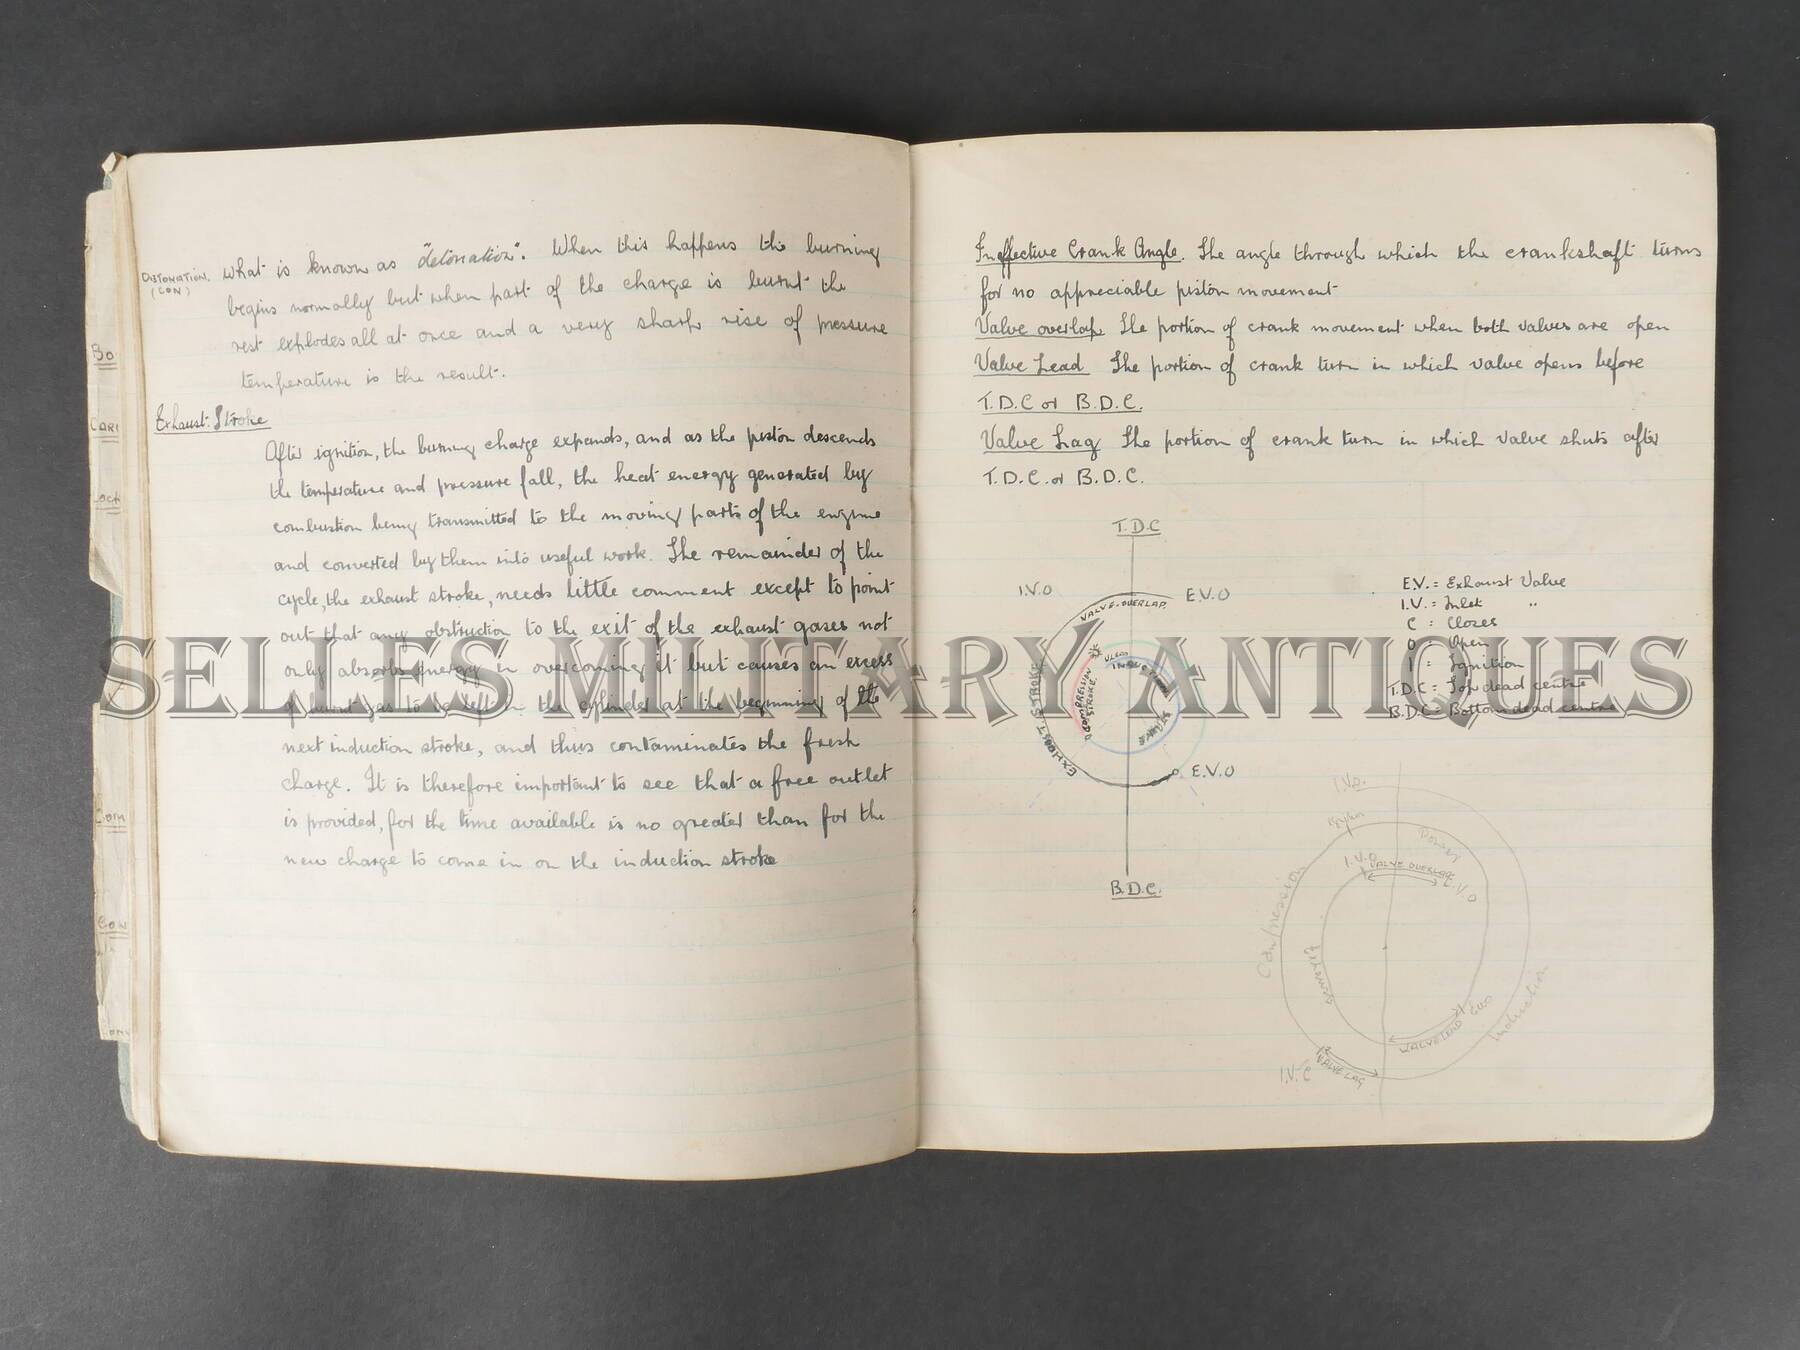 DETONATION. (CON)
what is known as "detonation". When this happens the burning
begins normally but when part of the charge is burnt the
rest explodes all at once and a very sharp rise of pressure
temperature is the result.
Exhaust Stroke
After ignition, the burning charge expands, and as the piston descends
the temperature and pressure fall, the heat energy generated by
combustion being transmitted to the moving parts of the engine
and converted by them into useful work. The remainder of the
cycle, the exhaust stroke, needs little comment except to point
out that any obstruction to the exit of the exhaust gases not
only absorbs energy in overcoming it but causes an excess
of burnt gas to be left in the cylinder at the beginning of the
next induction stroke, and thus contaminates the fresh
charge. It is therefore important to see that a free outlet
is provided, for the time available is no greater than for the
new charge to come in on the induction stroke
Bo
CAR
Lock
Com
CON
Ineffective Crank Angle. The angle through which the crankshaft turns
for no appreciable piston movement
Valve overlap The portion of crank movement when both valves are open
Valve Lead The portion of crank turn in which valve opens before
T.D.C or B.D.C.
Valve Lag The portion of crank turn in which valve shuts after
T.D.C. or B.D.C.
T.D.C
I.V.O
E.V.O
VALVE-OVERLAP.
EXHUAST STROKE
COMPRESSION STROKE.
INDUCTION STROKE
E.V.O
B.D.C.
E.V. = Exhaust Valve
I.V. = Inlet "
C = Closes
O = Open
I = Ignition
T.D.C = Top dead centre
B.D.C = Bottom dead centre
I.V.O.
Power
I.V.O
VALVE OVERLAP
E.V.O
Compression
EXHAUST
Induction
VALVE LEAD
EVO
VALVE LAG
I.V.C
SELLES MILITARY ANTIQUES